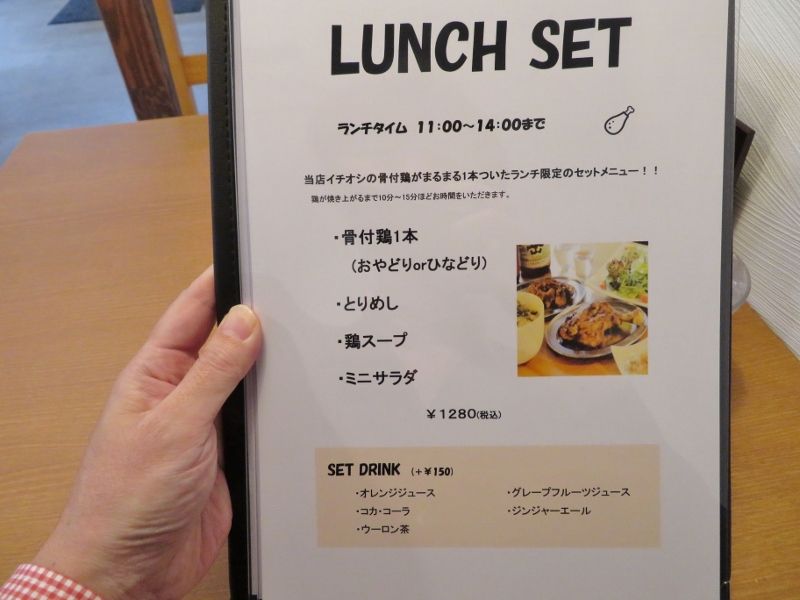 LUNCH SET
ランチタイム 11:00～14:00まで
当店イチオシの骨付鶏がまるまる1本ついたランチ限定のセットメニュー！！
鶏が焼き上がるまで10分～15分ほどお時間をいただきます。
・骨付鶏1本
（おやどりorひなどり）
・とりめし
・鶏スープ
・ミニサラダ
￥1280(税込)
SET DRINK （＋￥150）
・オレンジジュース ・グレープフルーツジュース
・コカ・コーラ ・ジンジャーエール
・ウーロン茶